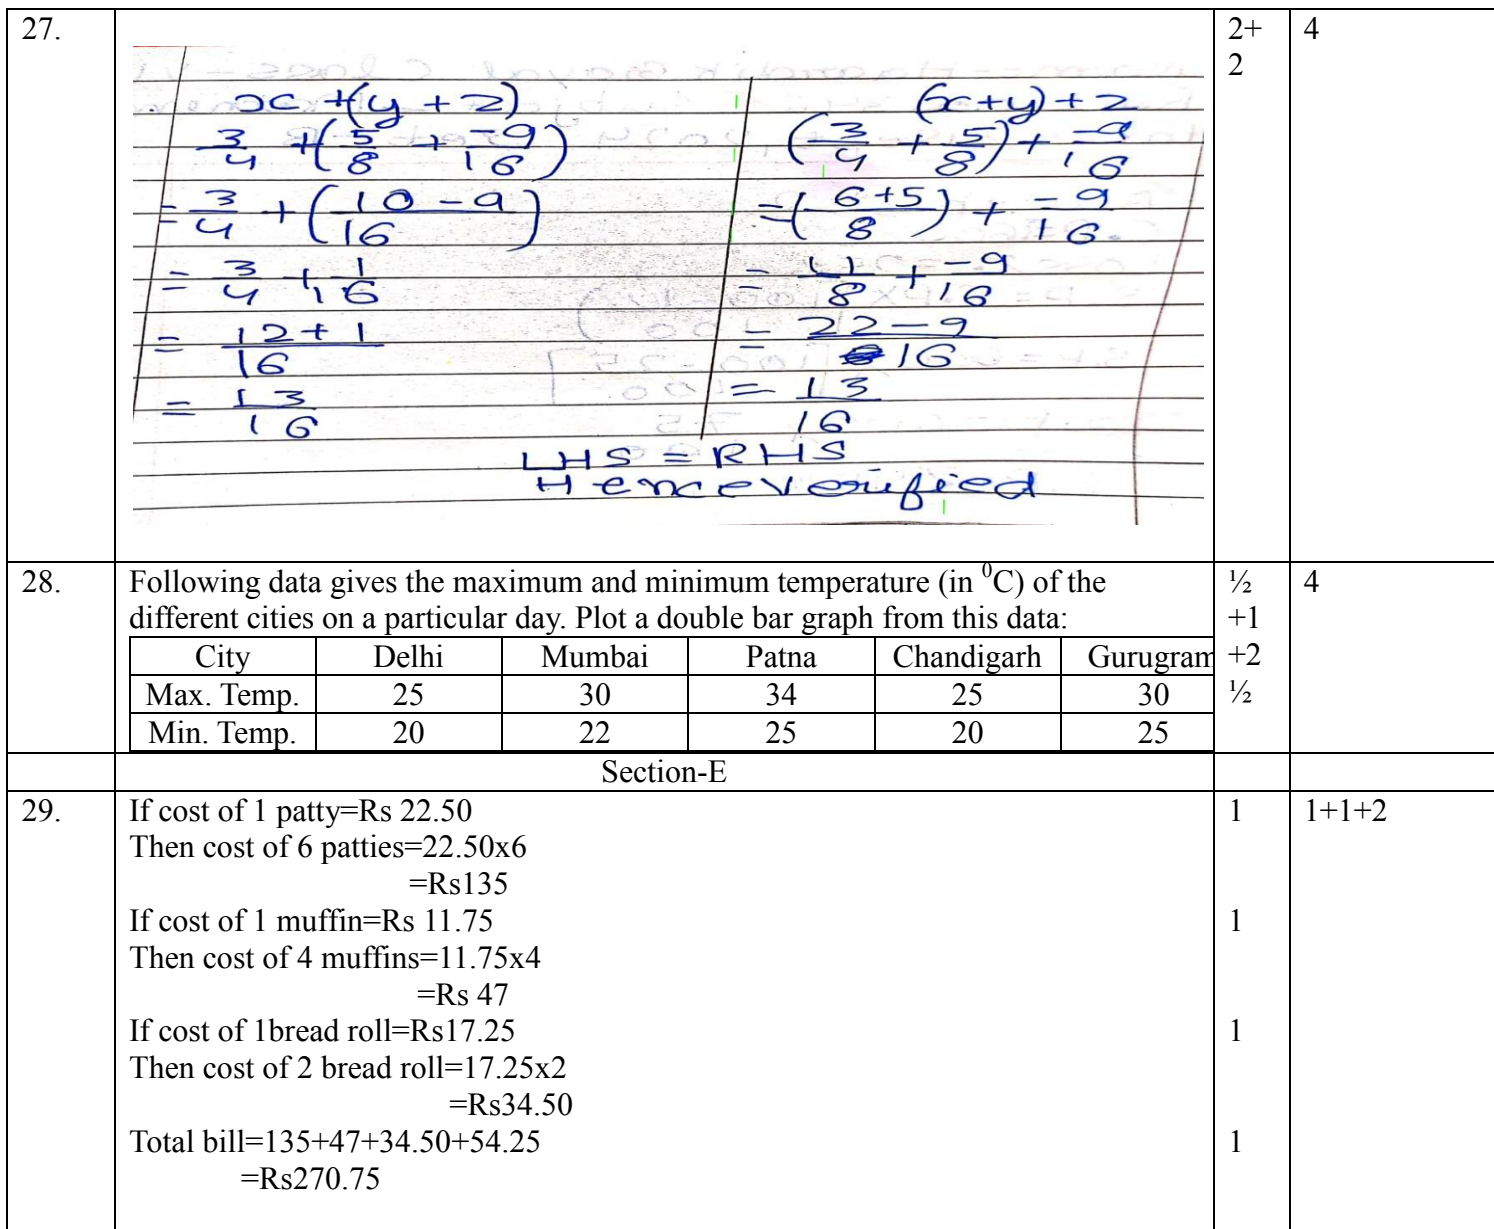 27. 2+ 4
2
x +(y + z) (x+y) + z
3/4 +(5/8 + -9/16) (3/4 + 5/8) + -9/16
= 3/4 + (10 - 9/16) =(6+5/8) + -9/16
= 3/4 + 1/16 = 11/8 + -9/16
= 12 + 1/16 = 22 - 9/16
= 13/16 = 13/16
LHS = RHS
Hence verified
28. Following data gives the maximum and minimum temperature (in ⁰C) of the ½ 4
different cities on a particular day. Plot a double bar graph from this data: +1
City Delhi Mumbai Patna Chandigarh Gurugram +2
Max. Temp. 25 30 34 25 30 ½
Min. Temp. 20 22 25 20 25
Section-E
29. If cost of 1 patty=Rs 22.50 1 1+1+2
Then cost of 6 patties=22.50x6
=Rs135
If cost of 1 muffin=Rs 11.75 1
Then cost of 4 muffins=11.75x4
=Rs 47
If cost of 1bread roll=Rs17.25 1
Then cost of 2 bread roll=17.25x2
=Rs34.50
Total bill=135+47+34.50+54.25 1
=Rs270.75